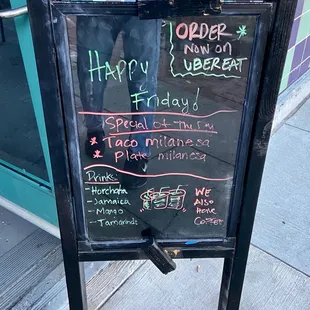 ORDER
NOW ON
UBEREAT
HAPPY
Friday!
Special of The Day
* Taco milanesa
* Plate milanesa
Drink:
- Horchata
- Jamaica
- Mango
- Tamarindo
WE
Also
Have
Coffee